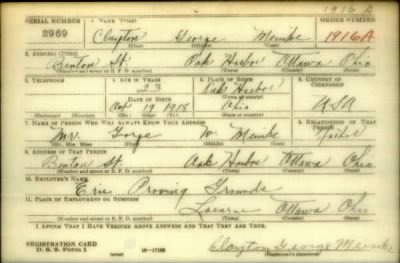 1916 A
SERIAL NUMBER 1. NAME (Print) ORDER NUMBER
3969 Clayton George Meinke 1916A
(First) (Middle) (Last)
2. ADDRESS (Print)
Benton St. Oak Harbor Ottawa Ohio
(Number and street or R. F. D. number) (Town) (County) (State)
3. TELEPHONE 4. AGE IN YEARS 5. PLACE OF BIRTH 6. COUNTRY OF CITIZENSHIP
23 Oak Harbor
DATE OF BIRTH (Town or county)
Apr 19 1918 Ohio USA
(Mo.) (Day) (Yr.) (State or country)
7. NAME OF PERSON WHO WILL ALWAYS KNOW YOUR ADDRESS 8. RELATIONSHIP OF THAT PERSON
Mr. George W Meinke Father
(Mr., Mrs., Miss) (First) (Middle) (Last)
9. ADDRESS OF THAT PERSON
Benton St. Oak Harbor Ottawa Ohio
(Number and street or R. F. D. number) (Town) (County) (State)
10. EMPLOYER'S NAME
Erie Proving Grounds
11. PLACE OF EMPLOYMENT OR BUSINESS
Lacarne Ottawa Ohio
(Number and street or R. F. D. number) (Town) (County) (State)
I AFFIRM THAT I HAVE VERIFIED ABOVE ANSWERS AND THAT THEY ARE TRUE.
REGISTRATION CARD
D. S. S. Form 1 (over) 16-17105 Clayton George Meinke
(Registrant's signature)